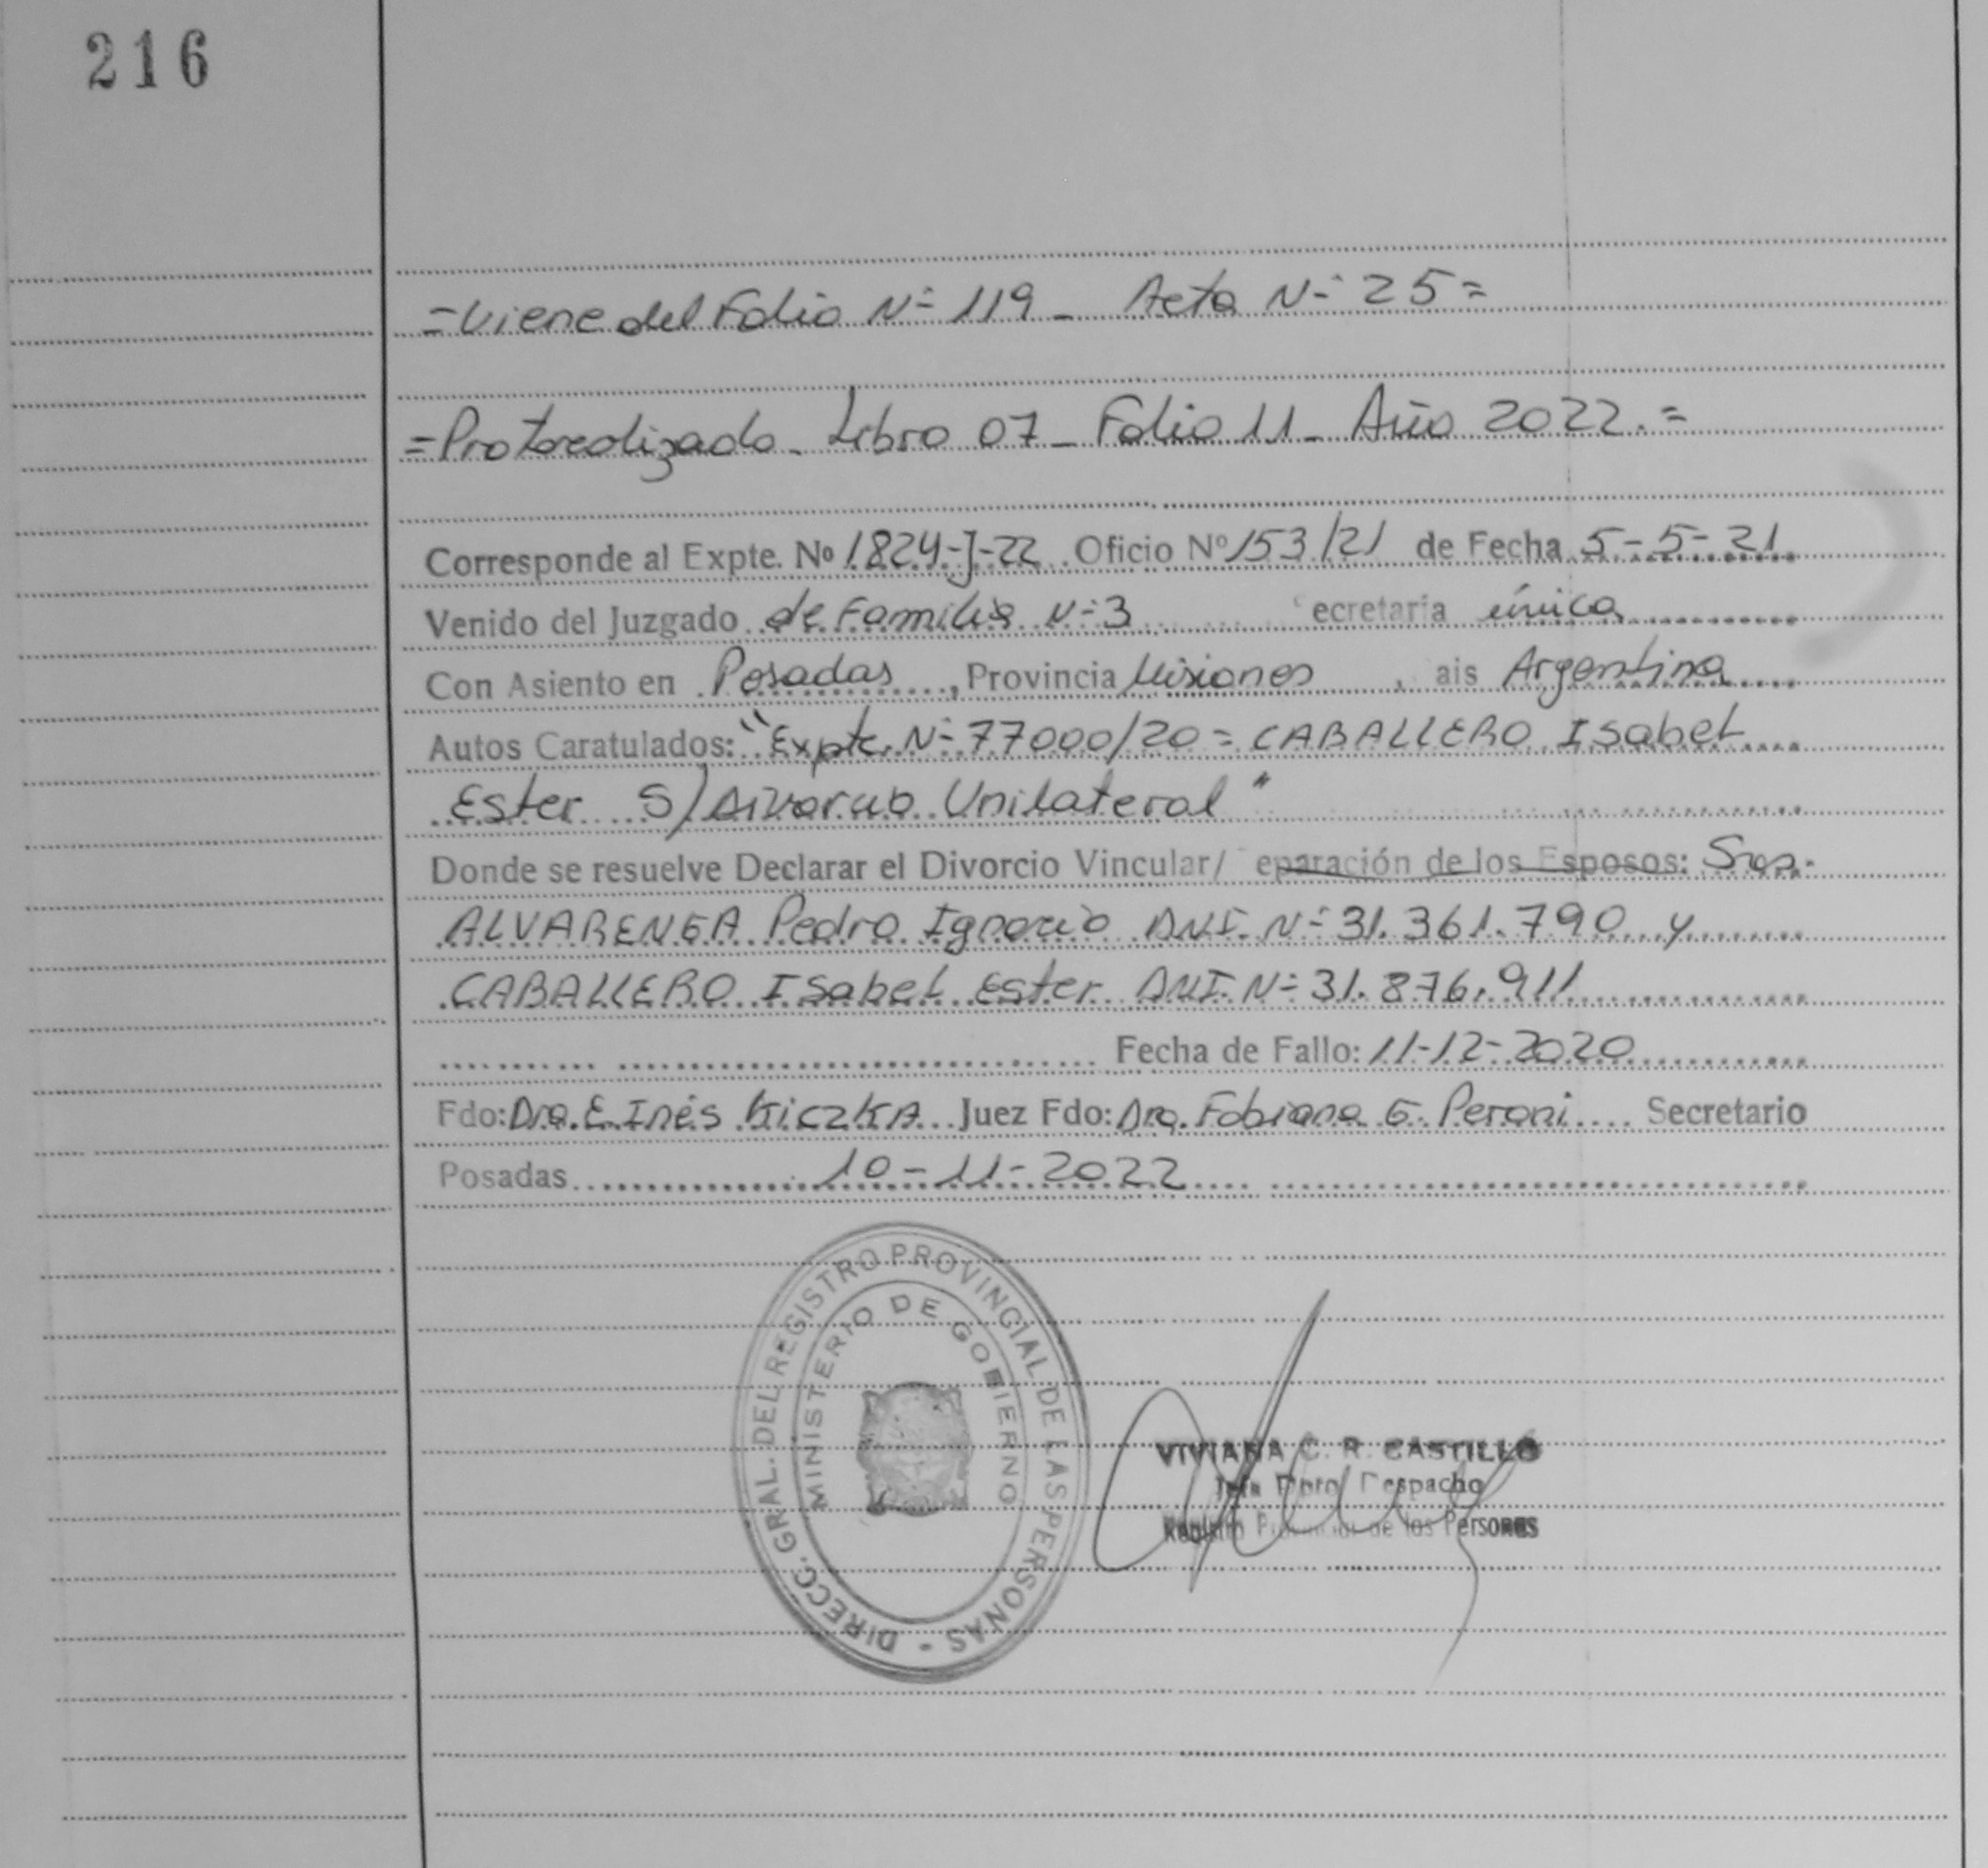 216
=Viene del Folio Nº 119 - Acta Nº 25=
=Protocolizado - Libro 07 - Folio 11 - Año 2022.=
Corresponde al Expte. Nº 1824-J-22 Oficio Nº 153/21 de Fecha 5-5-21
Venido del Juzgado de Familia Nº 3 ecretaria única
Con Asiento en Posadas, Provincia Misiones, ais Argentina
Autos Caratulados: "Expte. Nº 77000/20 = CABALLERO Isabel
Ester S/Divorcio Unilateral"
Donde se resuelve Declarar el Divorcio Vincular/ eparación de los Esposos: Sres.
ALVARENGA Pedro Ignacio DNI. Nº 31.361.790 y
CABALLERO Isabel Ester DNI Nº 31.876.911
Fecha de Fallo: 11-12-2020
Fdo: Dra. E. Inés KiczKA Juez Fdo: Dra. Fabiana G. Peroni Secretario
Posadas 10-11-2022
DIRECC. GRAL. DEL REGISTRO PROVINCIAL DE LAS PERSONAS -
MINISTERIO DE GOBIERNO
VIVIANA C. R. CASTILLO
Despacho
de las Personas